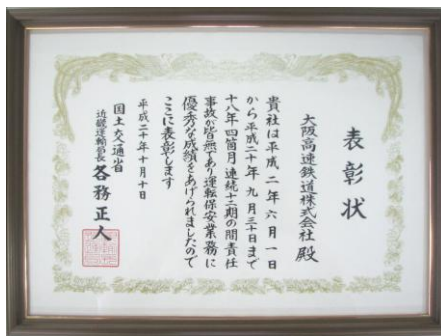 表彰状
大阪高速鉄道株式会社殿
貴社は平成二年六月一日
から平成二十年九月三十日まで
十八年四箇月連続十二期の間責任
事故が皆無であり運転保安業務に
優秀な成績をあげられましたので
ここに表彰します
平成二十年十月十日
国土交通省
近畿運輸局長 各務正人